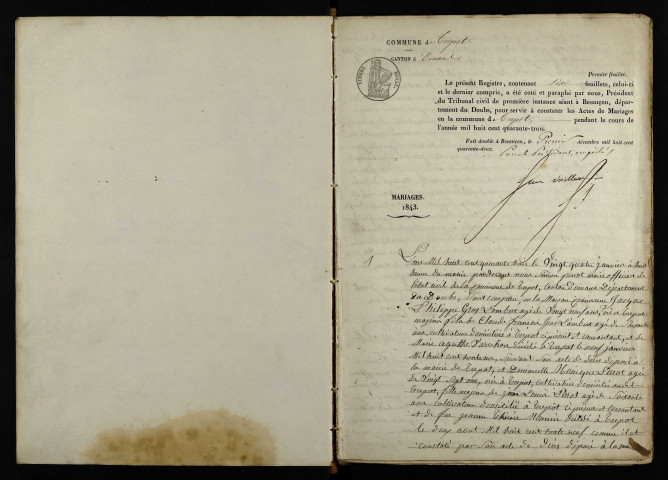 COMMUNE de Trepot
CANTON d'Ornans
TIMBRE ROYAL
Premier feuillet.
Le présent Registre, contenant six feuillets, celui-ci
et le dernier compris, a été coté et paraphé par nous, Président
du Tribunal civil de première instance séant à Besançon, dépar-
tement du Doubs, pour servir à constater les Actes de Mariages
en la commune de Trepot pendant le cours de
l'année mil huit cent quarante-trois.
Fait double à Besançon, le Premier décembre mil huit cent
quarante-deux.
Pour le Président
MARIAGES.
1843.
1
L'an Mil huit cent quarante trois le Vingt quatre janvier à huit
heures du matin par devant nous Simon maire officier de
l'état civil de la commune de Trepot, canton d'ornans Département
du Doubs, Sont comparu en la Maison commune Jacques
Philippe Gros Lambert agé de Vingt neuf ans, né à Trepot
majeur fils de Claude François Gros Lambert agé de
ans cultivateur domicilié à Trepot ci présent et consentant, et de
Marie agathe décédée à Trepot le neuf janvier
Mil huit cent suivant Son acte de décès déposé à
la mairie de Trepot, et Demoiselle Monique Perrot agée
de Vingt Sept ans, née à Trepot, cultivatrice domiciliée audit
Trepot, fille majeure de Perrot agé de Soixante
ans cultivateur domicilié à Trepot ci présent et consentant
et de feu Décédée à Trepot
le deux aout Mil huit cent trente neuf comme il est
constaté par Son acte de décès déposé à la mairie